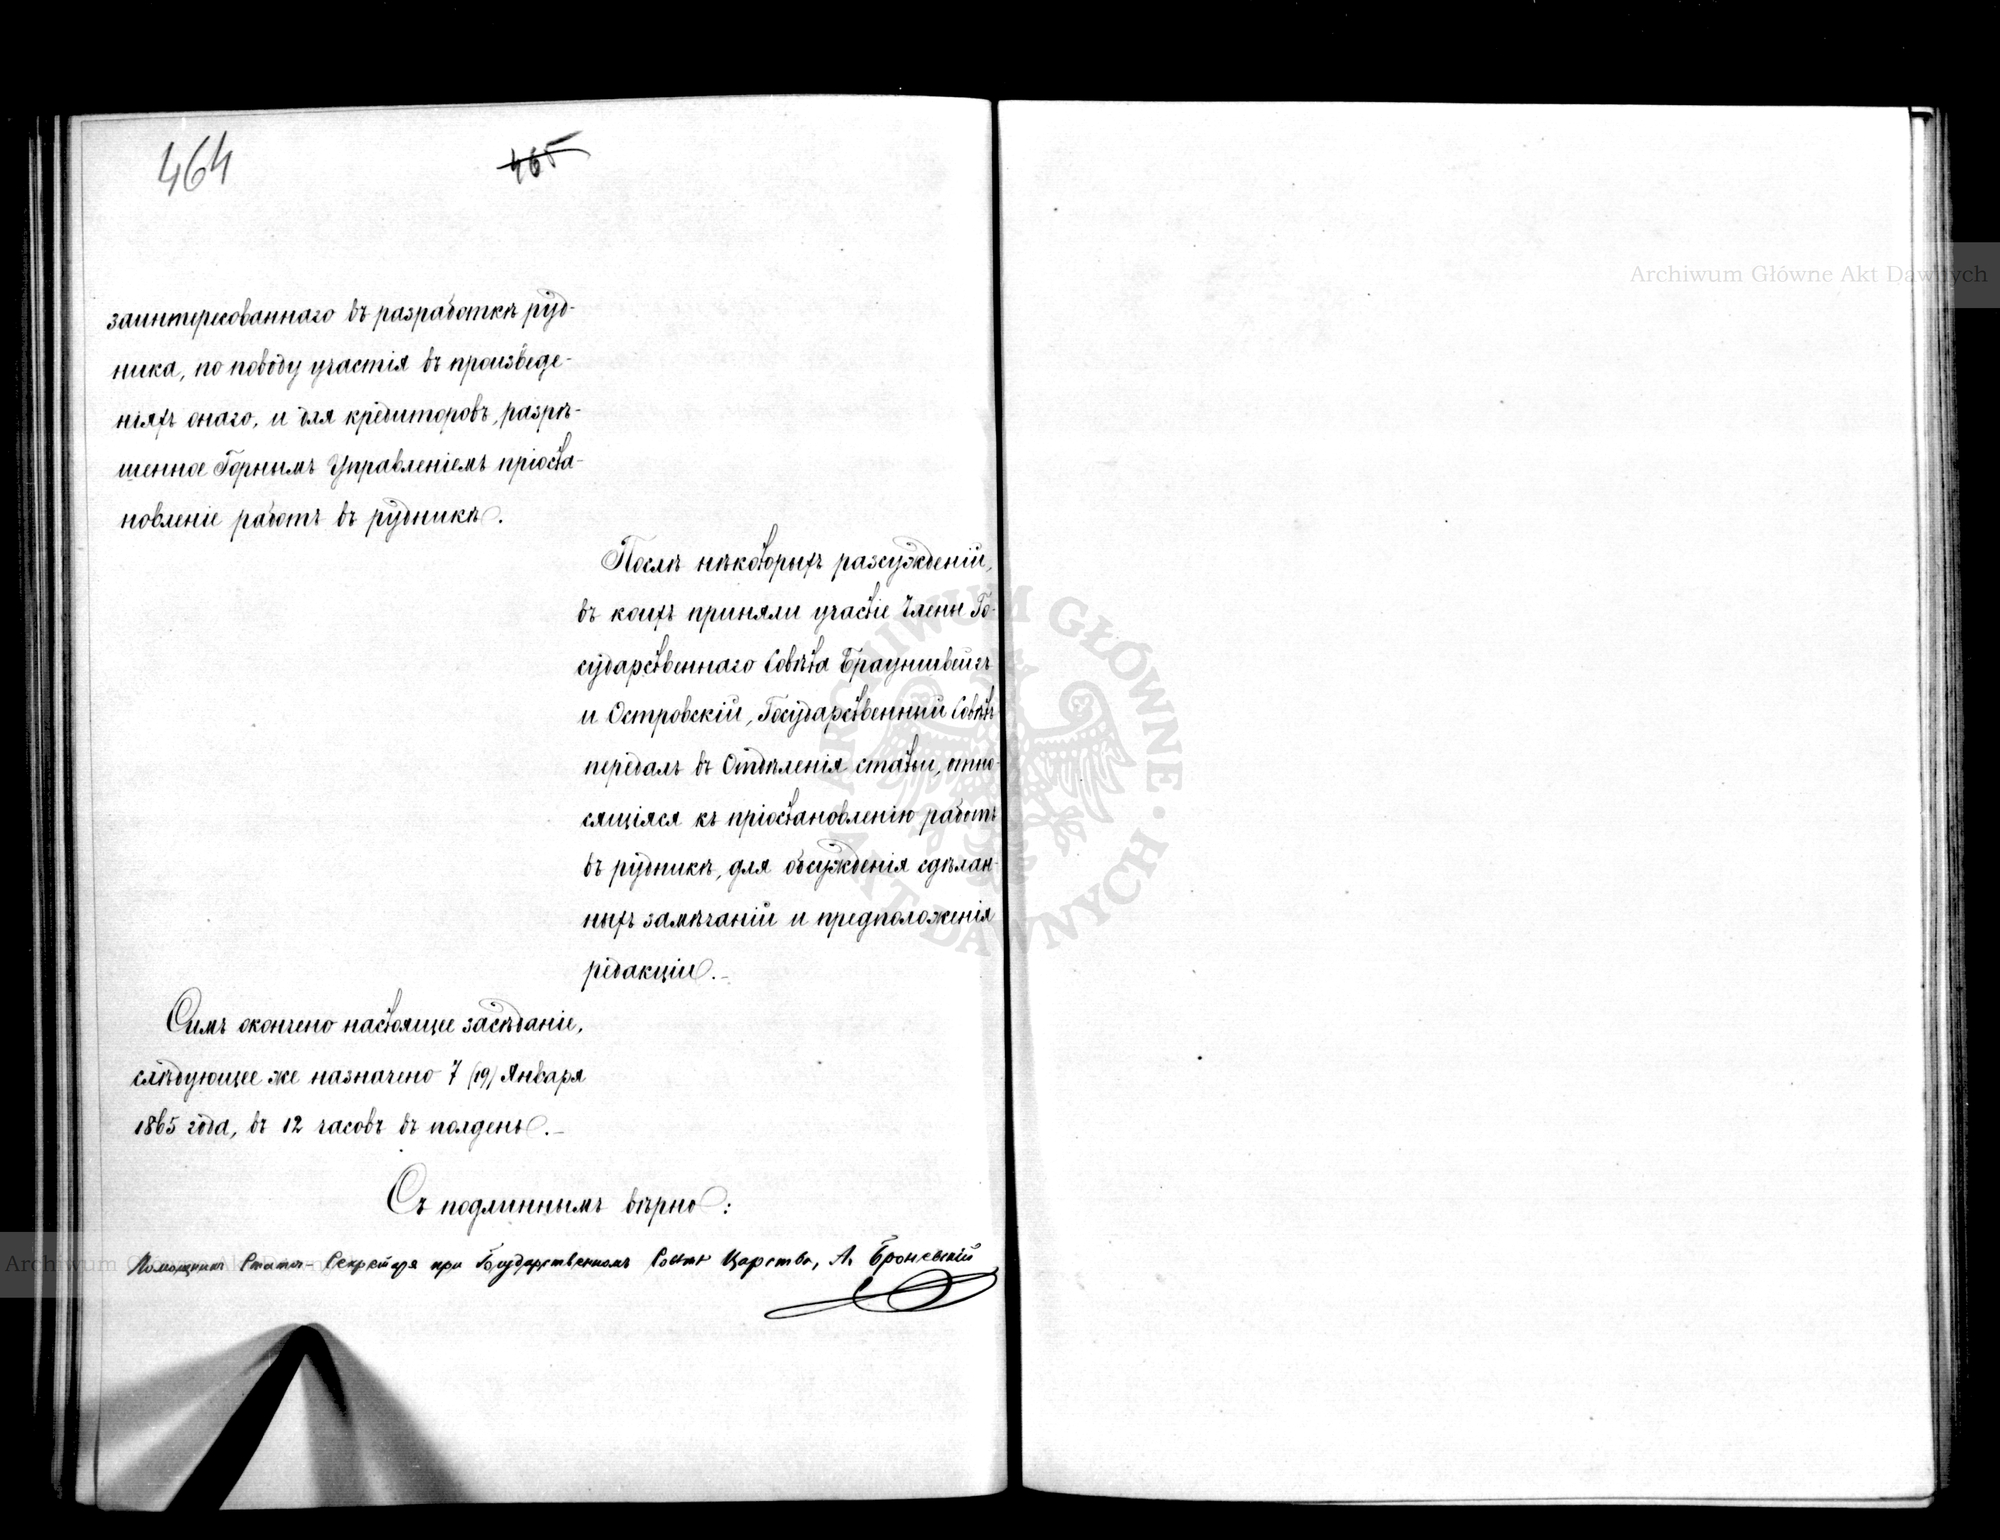 464
465
заинтересованнаго въ разработкѣ руд-
ника, по поводу участія въ произведе-
ніяхъ онаго, и для кредиторовъ, разрѣ-
шенное Горнымъ Управленіемъ пріоста-
новленіе работъ въ рудникѣ.
Послѣ нѣкоторыхъ разсужденій,
въ коихъ приняли участіе Члены Го-
сударственнаго Совѣта Брауншвейгъ
и Островскій, Государственный Совѣтъ
передалъ въ Отдѣленія статьи, отно-
сящіяся къ пріостановленію работъ
въ рудникѣ, для обсужденія сдѣлан-
ныхъ замѣчаній и предположенія
редакціи.
Симъ окончено настоящее засѣданіе,
слѣдующее же назначено 7 (19) Января
1865 года, въ 12 часовъ въ полдень.
Съ подлиннымъ вѣрно:
Помощникъ Статсъ-Секретаря при Государственномъ Совѣтѣ Царства, А. Броневскій
Archiwum Główne Akt Dawnych
ARCHIWUM GŁÓWNE AKT DAWNYCH
Archiwum Główne Akt Dawnych